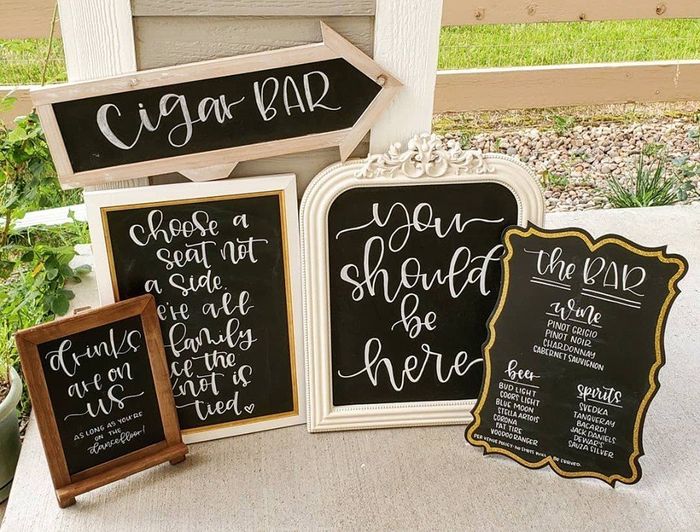 cigar BAR
choose a
seat not
a side.
we're all
family
once the
knot is
tied
you
should
be
here
drinks
are on
us
AS LONG AS YOU'RE
ON THE
dancefloor!
the BAR
wine
PINOT GRIGIO
PINOT NOIR
CHARDONNAY
CABERNET SAUVIGNON
beer
BUD LIGHT
COORS LIGHT
BLUE MOON
STELLA ARTOIS
CORONA
FAT TIRE
VOODOO RANGER
spirits
SVEDKA
TANQUERAY
BACARDI
JACK DANIELS
DEWAR'S
SAUZA SILVER
PER VENUE POLICY- NO SHOTS WILL BE SERVED.